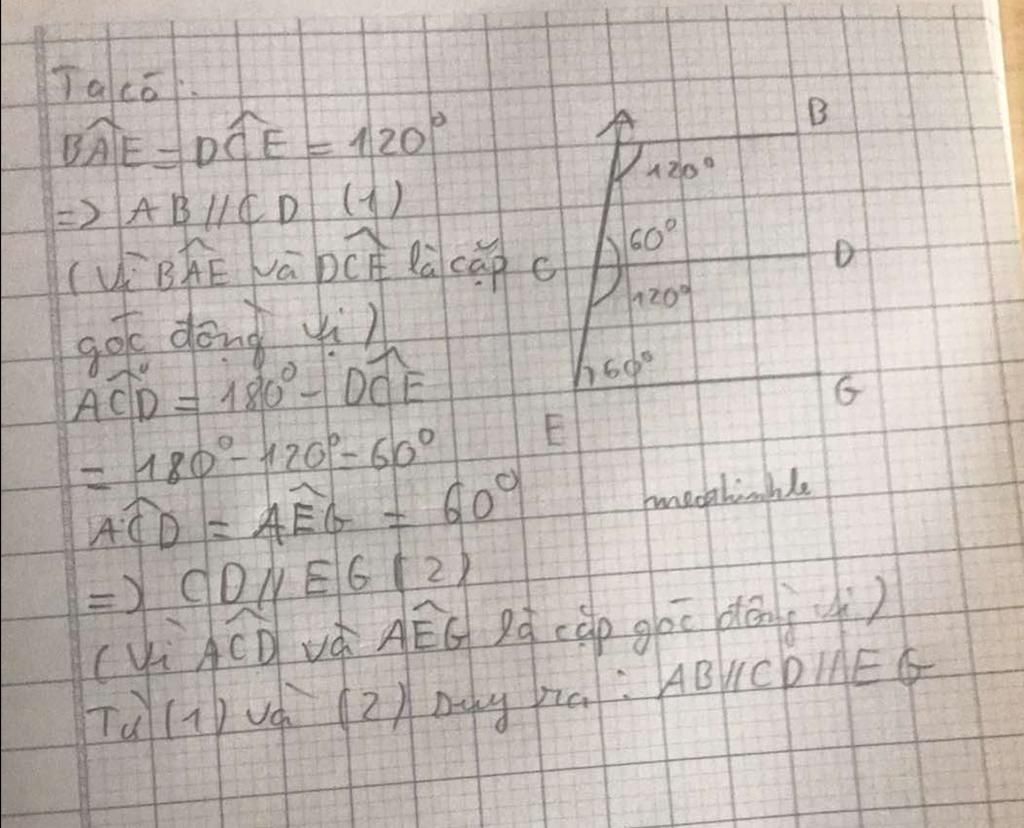 Ta có:
BÂE = DĈE = 120°
=> AB // CD (1)
(Vì BÂE và DĈE là cặp
góc đồng vị)
AĈD = 180° - DĈE
= 180° - 120° = 60°
AĈD = AÊG = 60°
=> CD // EG (2)
(Vì AĈD và AÊG là cặp góc đồng vị)
Từ (1) và (2) suy ra: AB // CD // EG
A
B
120°
60°
C
D
120°
60°
E
G